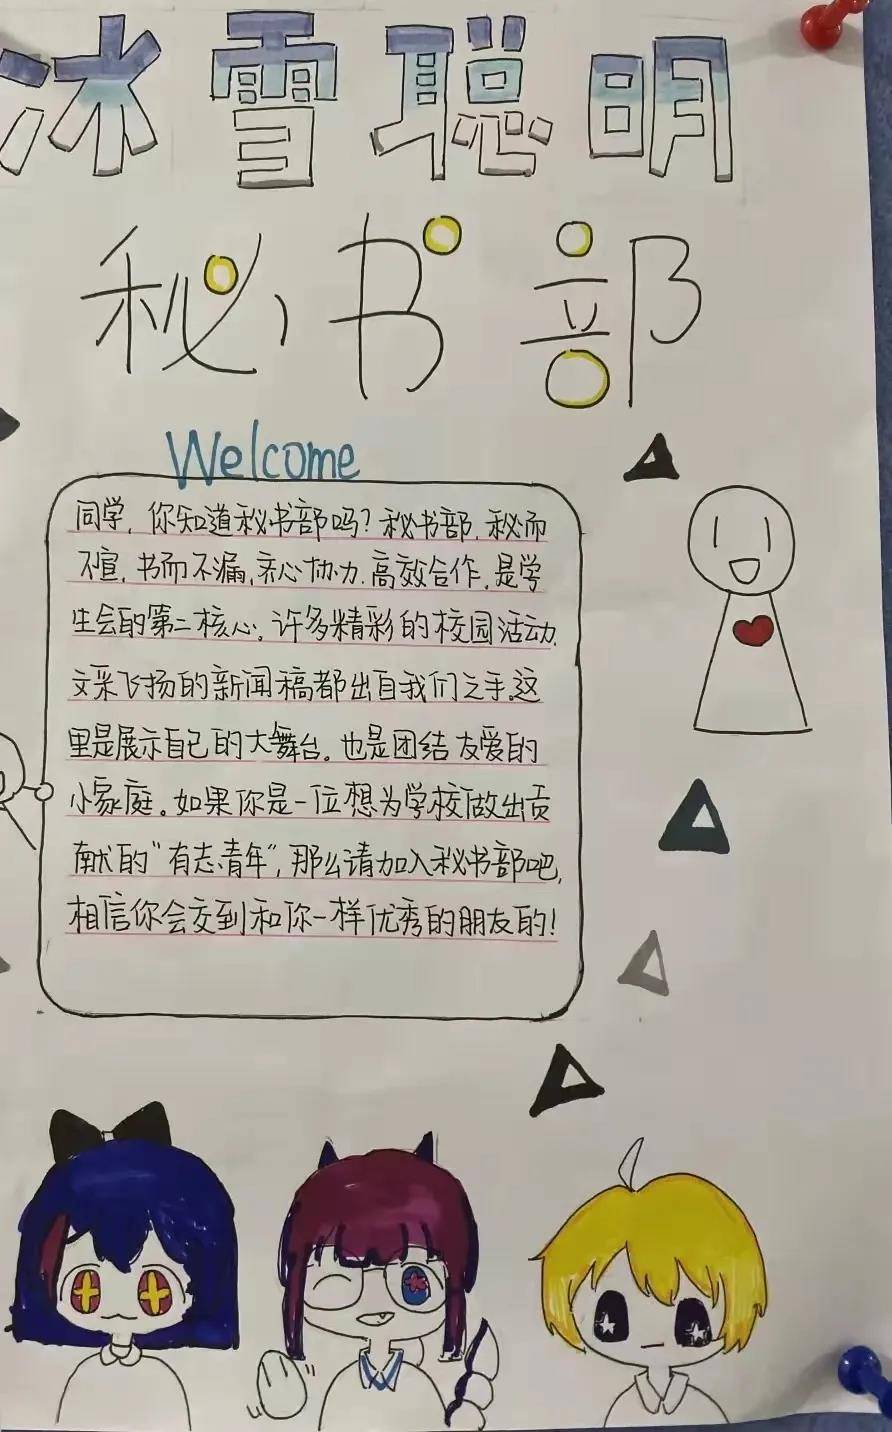 冰雪聪明
秘书部
Welcome
同学，你知道秘书部吗？秘书部，秘而
不宣，书而不漏，齐心协力，高效合作，是学
生会的第二核心，许多精彩的校园活动，
文采飞扬的新闻稿都出自我们之手。这
里是展示自己的大舞台。也是团结友爱的
小家庭。如果你是一位想为学校做出贡
献的“有志青年”，那么请加入秘书部吧，
相信你会交到和你一样优秀的朋友的！